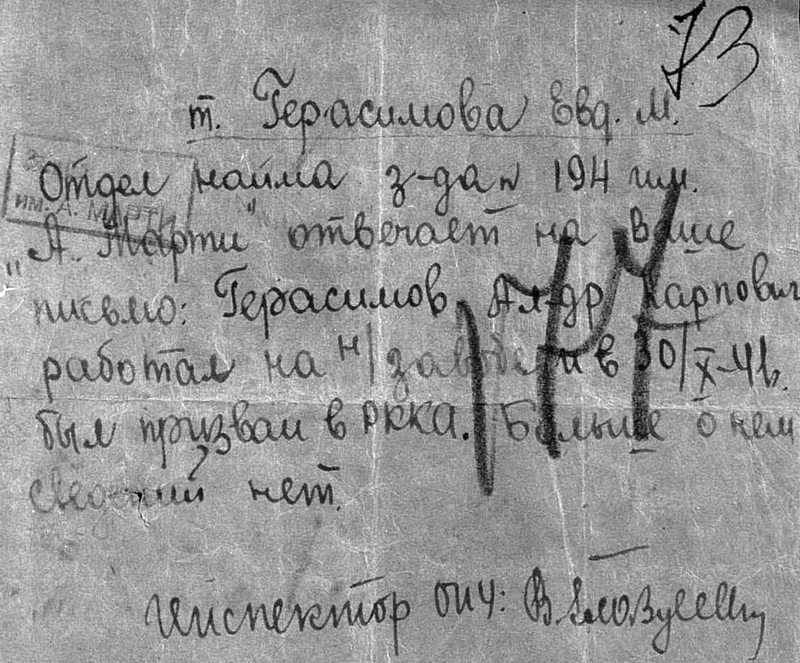 73
т. Герасимова Евд. М.
Отдел найма з-да № 194 им.
им. А. МАРТИ
"А. Марти" отвечает на Ваше
письмо: Герасимов, Ал-др Карпович
работал на н/заводе и в 30/X-41г.
был призван в РККА. Больше о нем
сведений нет.
Инспектор ОНУ: